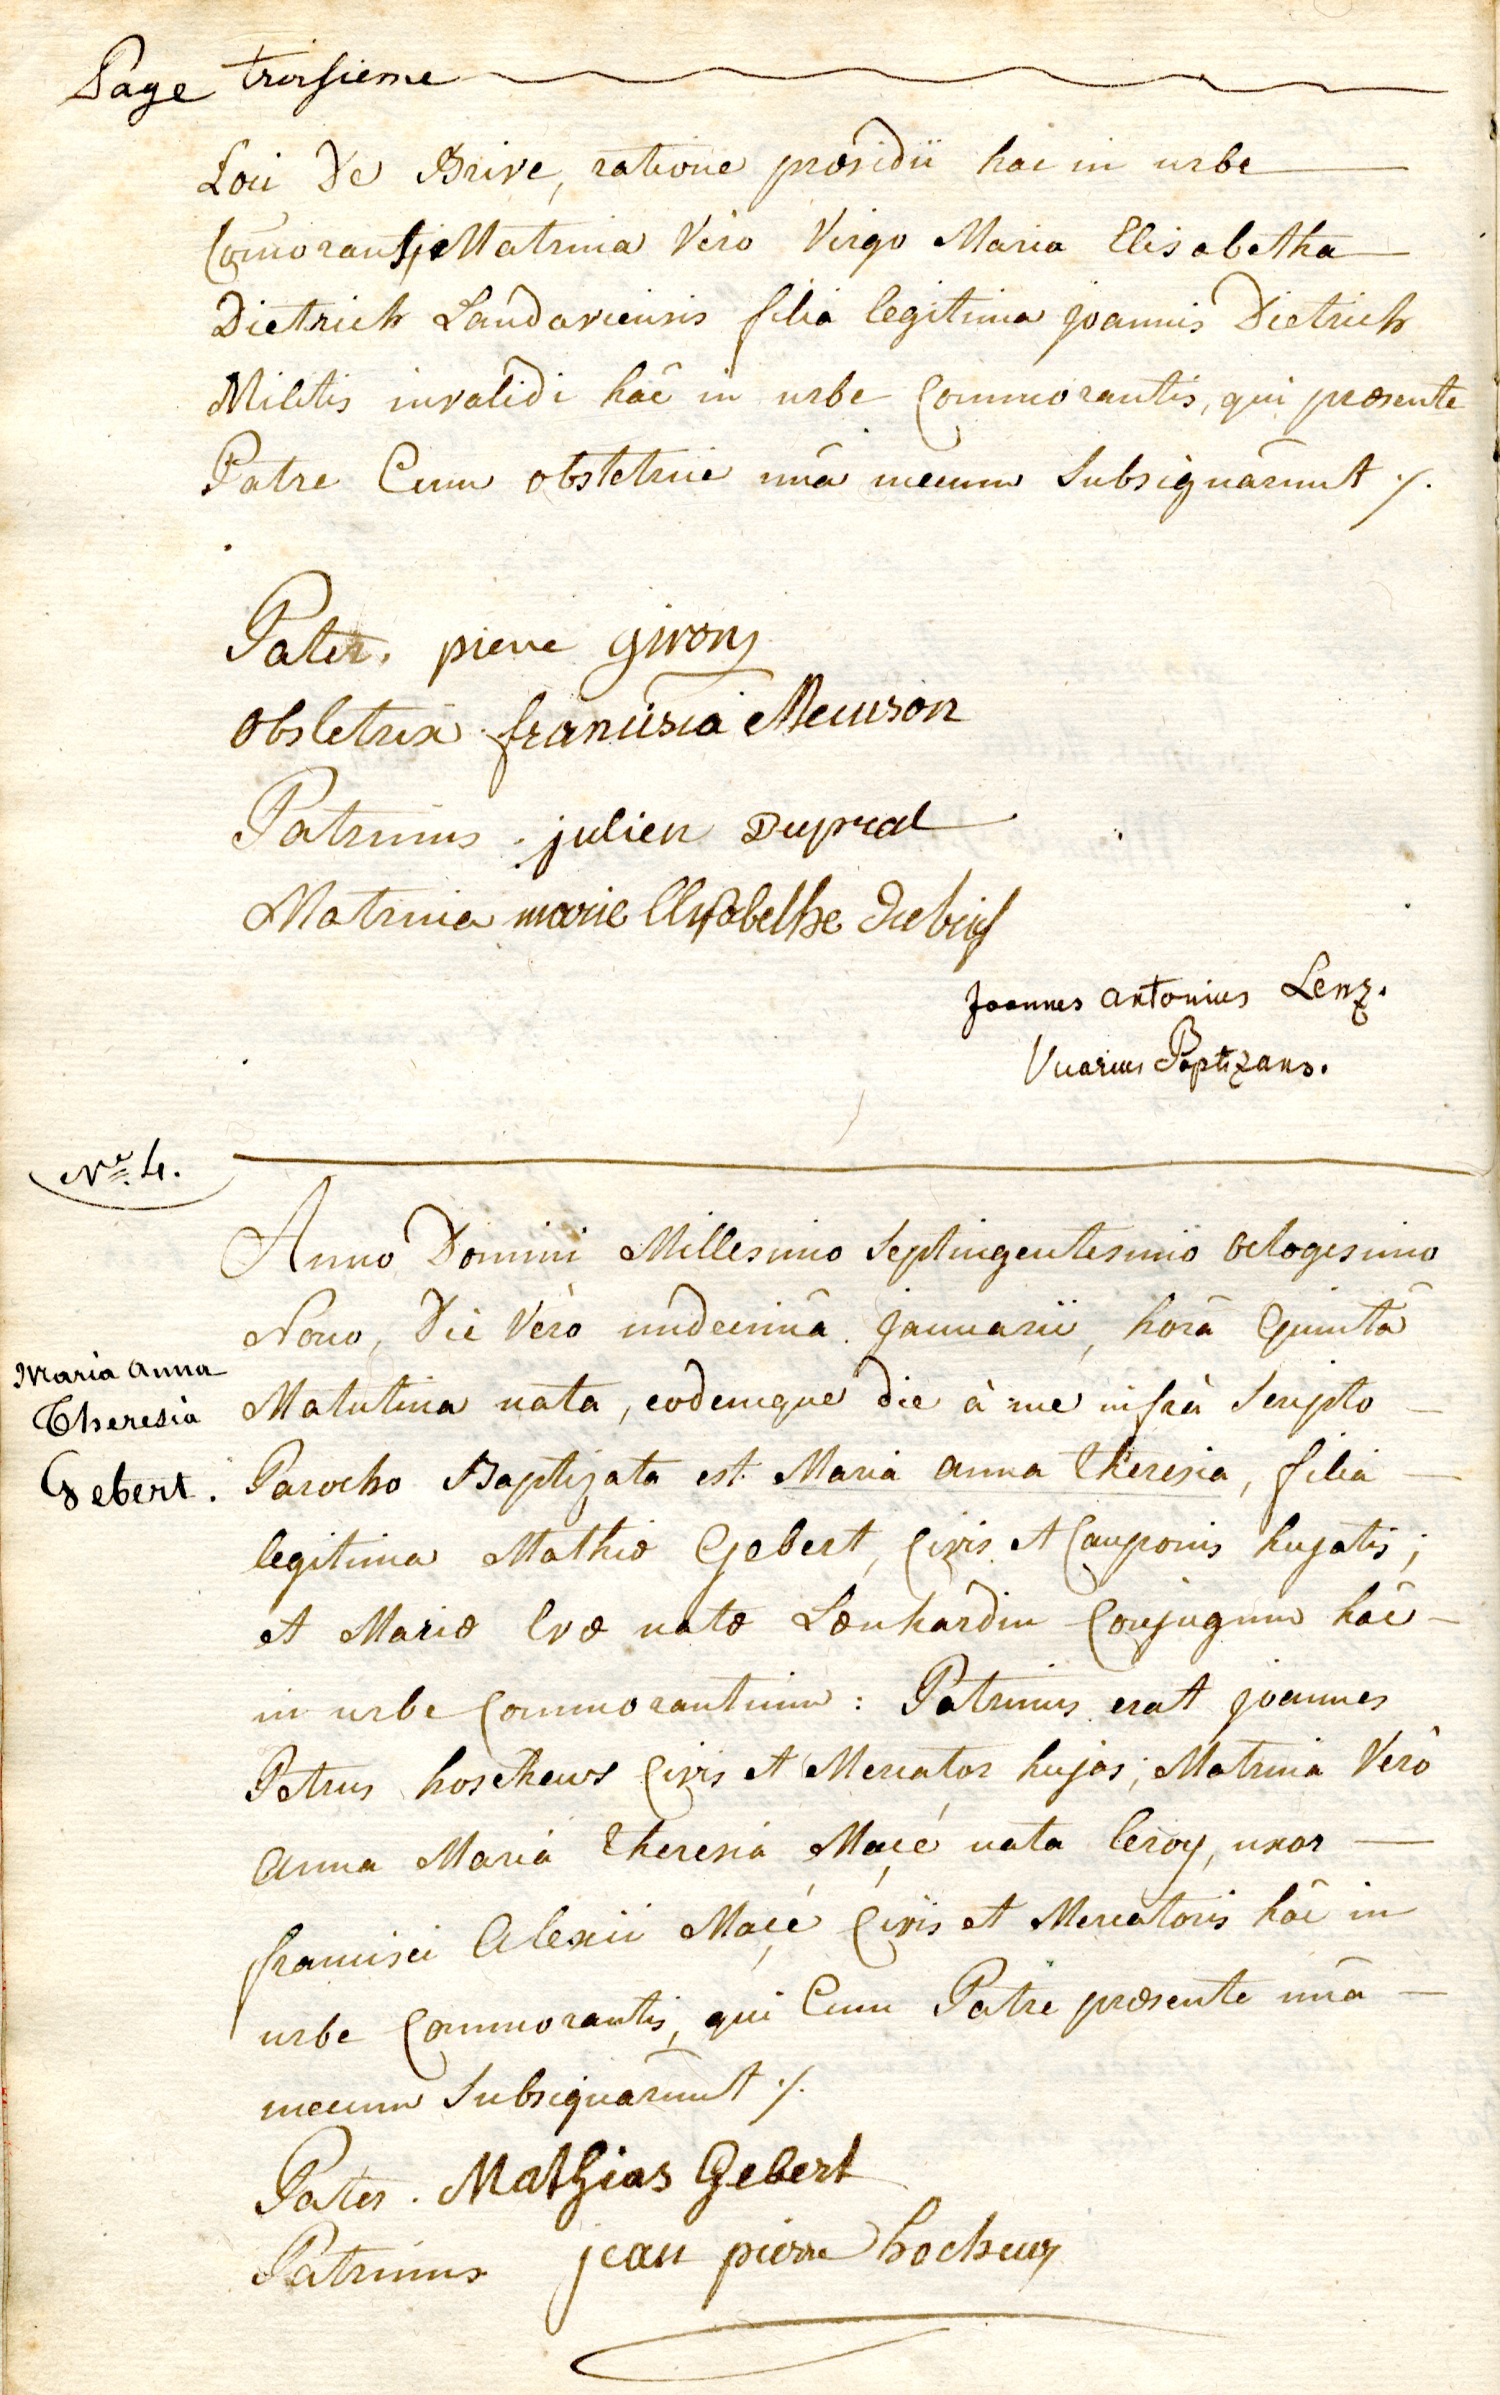 Page troisieme
Loci De Brive, ratione præsidii hac in urbe
Com̃orantis, Matrina Verò Virgo Maria Elisabetha
Dietrich Landaviensis filia legitima Joannis Dietrich
Militis invalidi hâc in urbe Commorantis, qui præsente
Patre Cum obstetrice unâ mecum Subsignârunt ·/.
Pater. pierre giron
Obstetrix francisca
Patrinus. julien Duprat
Matrina marie Elisabethe
Joannes antonius Lenz.
Vicarius Baptizans.
N.º 4.
Anno Domini Millesimo Septingentesimo octogesimo
Nono, Die Verò undecimâ januarii, horâ Quintâ
Maria anna
Matutina nata, eodemque die à me infrà Scripto
Theresia
Parocho Baptizata est Maria anna theresia, filia
Gebert.
legitima Mathiæ Gebert, Civis et Cauponis hujatis;
et Mariæ Evæ natæ Lænhardin Conjugum hâc
in urbe Commorantium: Patrinus erat joannes
Petrus hoscheur Civis et Mercator hujas; Matrina Verò
anna Maria theresia Maçé nata leroy, uxor
francisci Alexii Maçé Civis et Mercatoris hâc in
urbe Commorantis, qui Cum Patre præsente unâ
mecum Subsignârunt ·/.
Pater. Mathias Gebert
Patrinus jean pierre hocheur